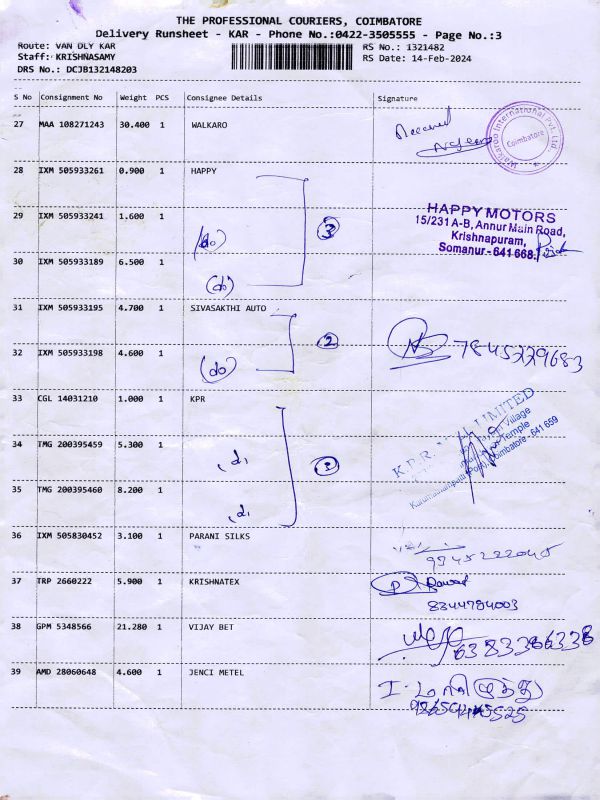 THE PROFESSIONAL COURIERS, COIMBATORE
Delivery Runsheet - KAR - Phone No.:0422-3505555 - Page No.:3
Route: VAN DLY KAR RS No.: 1321482
Staff: KRISHNASAMY RS Date: 14-Feb-2024
DRS No.: DCJB132148203
S No Consignment No Weight PCS Consignee Details Signature
27 MAA 108271243 30.400 1 WALKARO Received
Walkaroo International Pvt. Ltd., Coimbatore
28 IXM 505933261 0.900 1 HAPPY
HAPPY MOTORS
29 IXM 505933241 1.600 1 (do) 3 15/231 A-B, Annur Main Road,
Krishnapuram,
Somanur - 641 668.
30 IXM 505933189 6.500 1 (do)
31 IXM 505933195 4.700 1 SIVASAKTHI AUTO
2 7845229683
32 IXM 505933198 4.600 1 (do)
33 CGL 14031210 1.000 1 KPR
K.P.R. MILL LIMITED
Village
Temple
Coimbatore - 641 659
34 TMG 200395459 5.300 1
35 TMG 200395460 8.200 1
36 IXM 505830452 3.100 1 PARANI SILKS
37 TRP 2660222 5.900 1 KRISHNATEX
8344784003
38 GPM 5348566 21.280 1 VIJAY BET
39 AMD 28060648 4.600 1 JENCI METEL